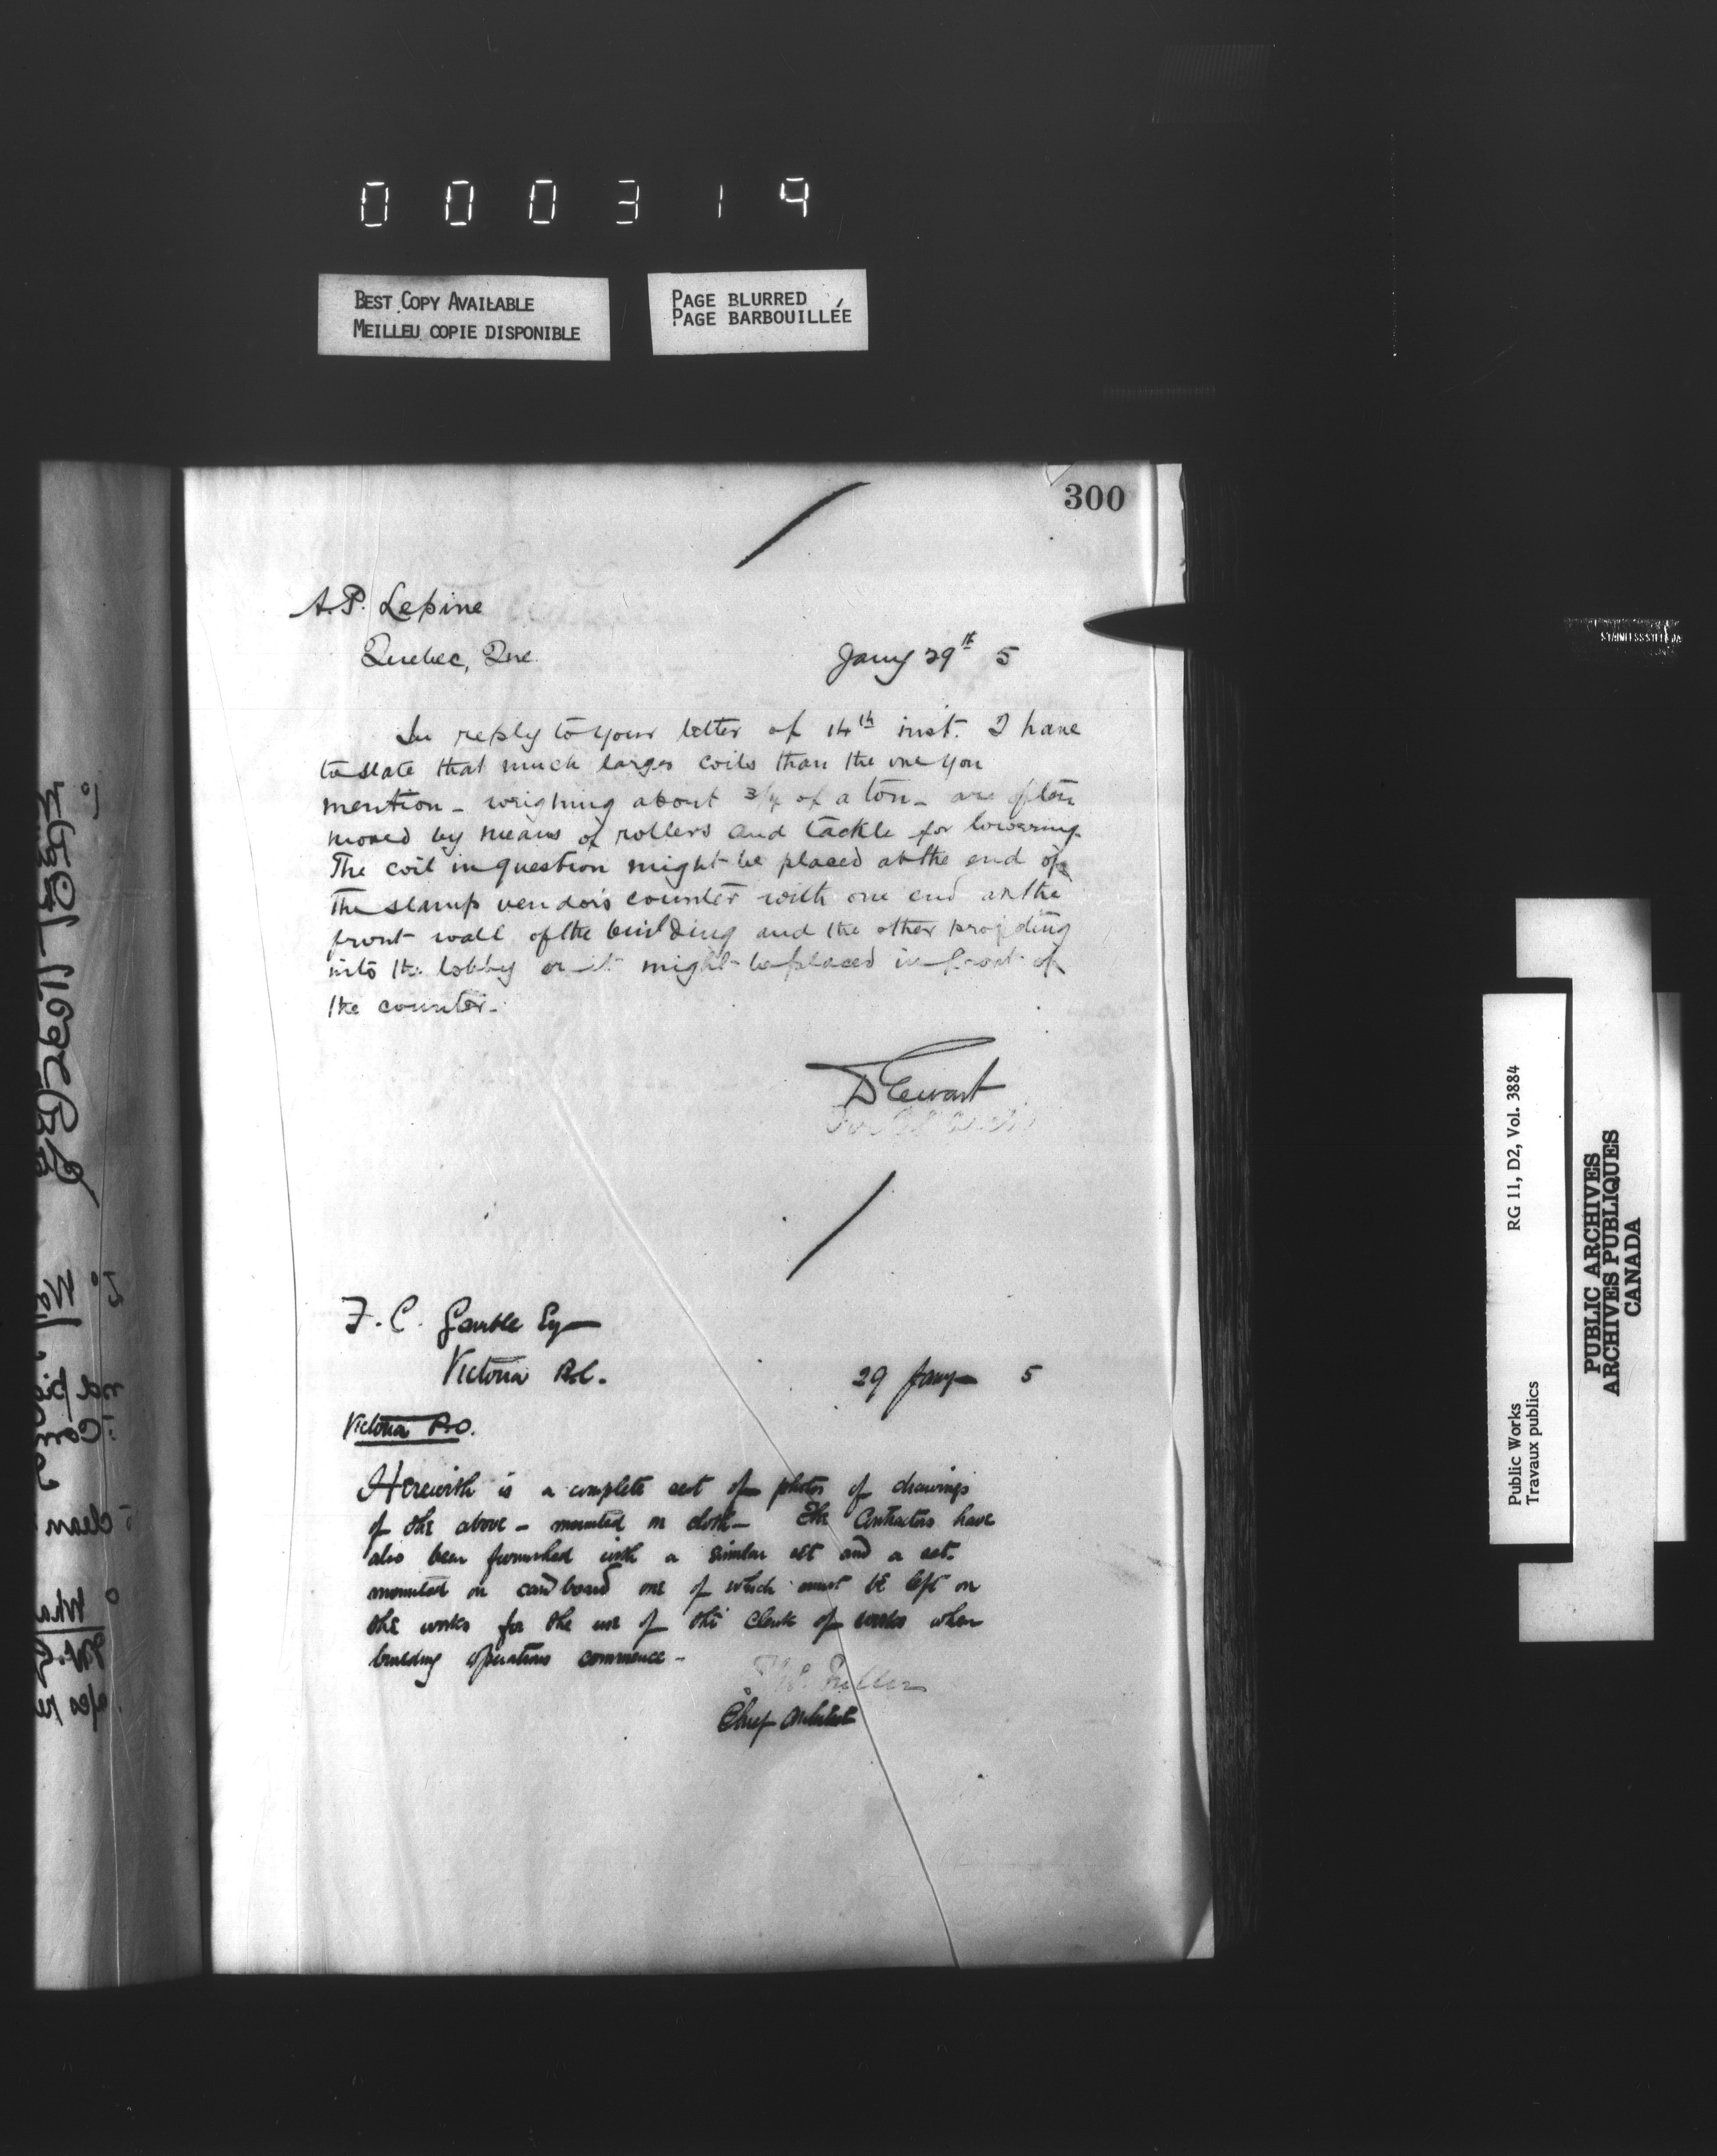 000319
BEST COPY AVAILABLE
MEILLEU COPIE DISPONIBLE
PAGE BLURRED
PAGE BARBOUILLÉE
300
A.P. Lepine
Quebec, Que.
Jany 29th 5
In reply to your letter of 14th inst. I have
to state that much larger coils than the one you
mention - weighing about 3/4 of a ton - are often
moved by means of rollers and tackle for lowering.
The coil in question might be placed at the end of
the stamp vendors counter with one end at the
front wall of the building and the other projecting
into the lobby or it might be placed in front of
the counter.
D Ewart
F. C. Gamble Esq
Victoria B.C.
29 Jany 5
Victoria P.O.
Herewith is a complete set of photos of drawings
of the above - mounted on cloth - The Contractors have
also been furnished with a similar set and a set
mounted on cardboard one of which must be left on
the works for the use of the clerk of works when
building operations commence -
Thos. Fuller
Chief Architect
STAINLESS STEEL
RG 11, D2, Vol. 3884
Public Works
Travaux publics
PUBLIC ARCHIVES
ARCHIVES PUBLIQUES
CANADA